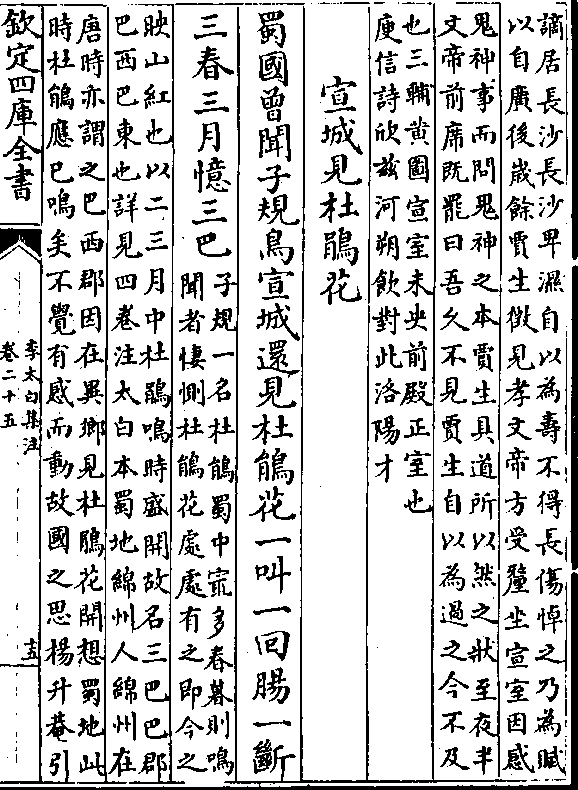 謫居長沙長沙卑濕自以為壽不得長傷悼之乃為賦
以自廣後歲餘賈生徴見孝文帝方受釐坐宣室因感
鬼神事而問鬼神之本賈生具道所以然之狀至夜半
文帝前席既罷曰吾久不見賈生自以為過之今不及
也三輔黄圖宣室未央前殿正室也
庾信詩欣兹河朔飲對此洛陽才
宣城見杜鵑花
蜀國曾聞子規鳥宣城還見杜鵑花一叫一回腸一斷
三春三月憶三巴
子規一名杜鵑蜀中最多春暮則鳴
聞者悽惻杜鵑花處處有之即今之
映山紅也以二三月中杜鵑鳴時盛開故名三巴巴郡
巴西巴東也詳見四卷注太白本蜀地綿州人綿州在
唐時亦謂之巴西郡因在異鄉見杜鵑花開想蜀地此
時杜鵑應已鳴矣不覺有感而動故國之思楊升菴引
欽定四庫全書
李太白集注
卷二十五
十五